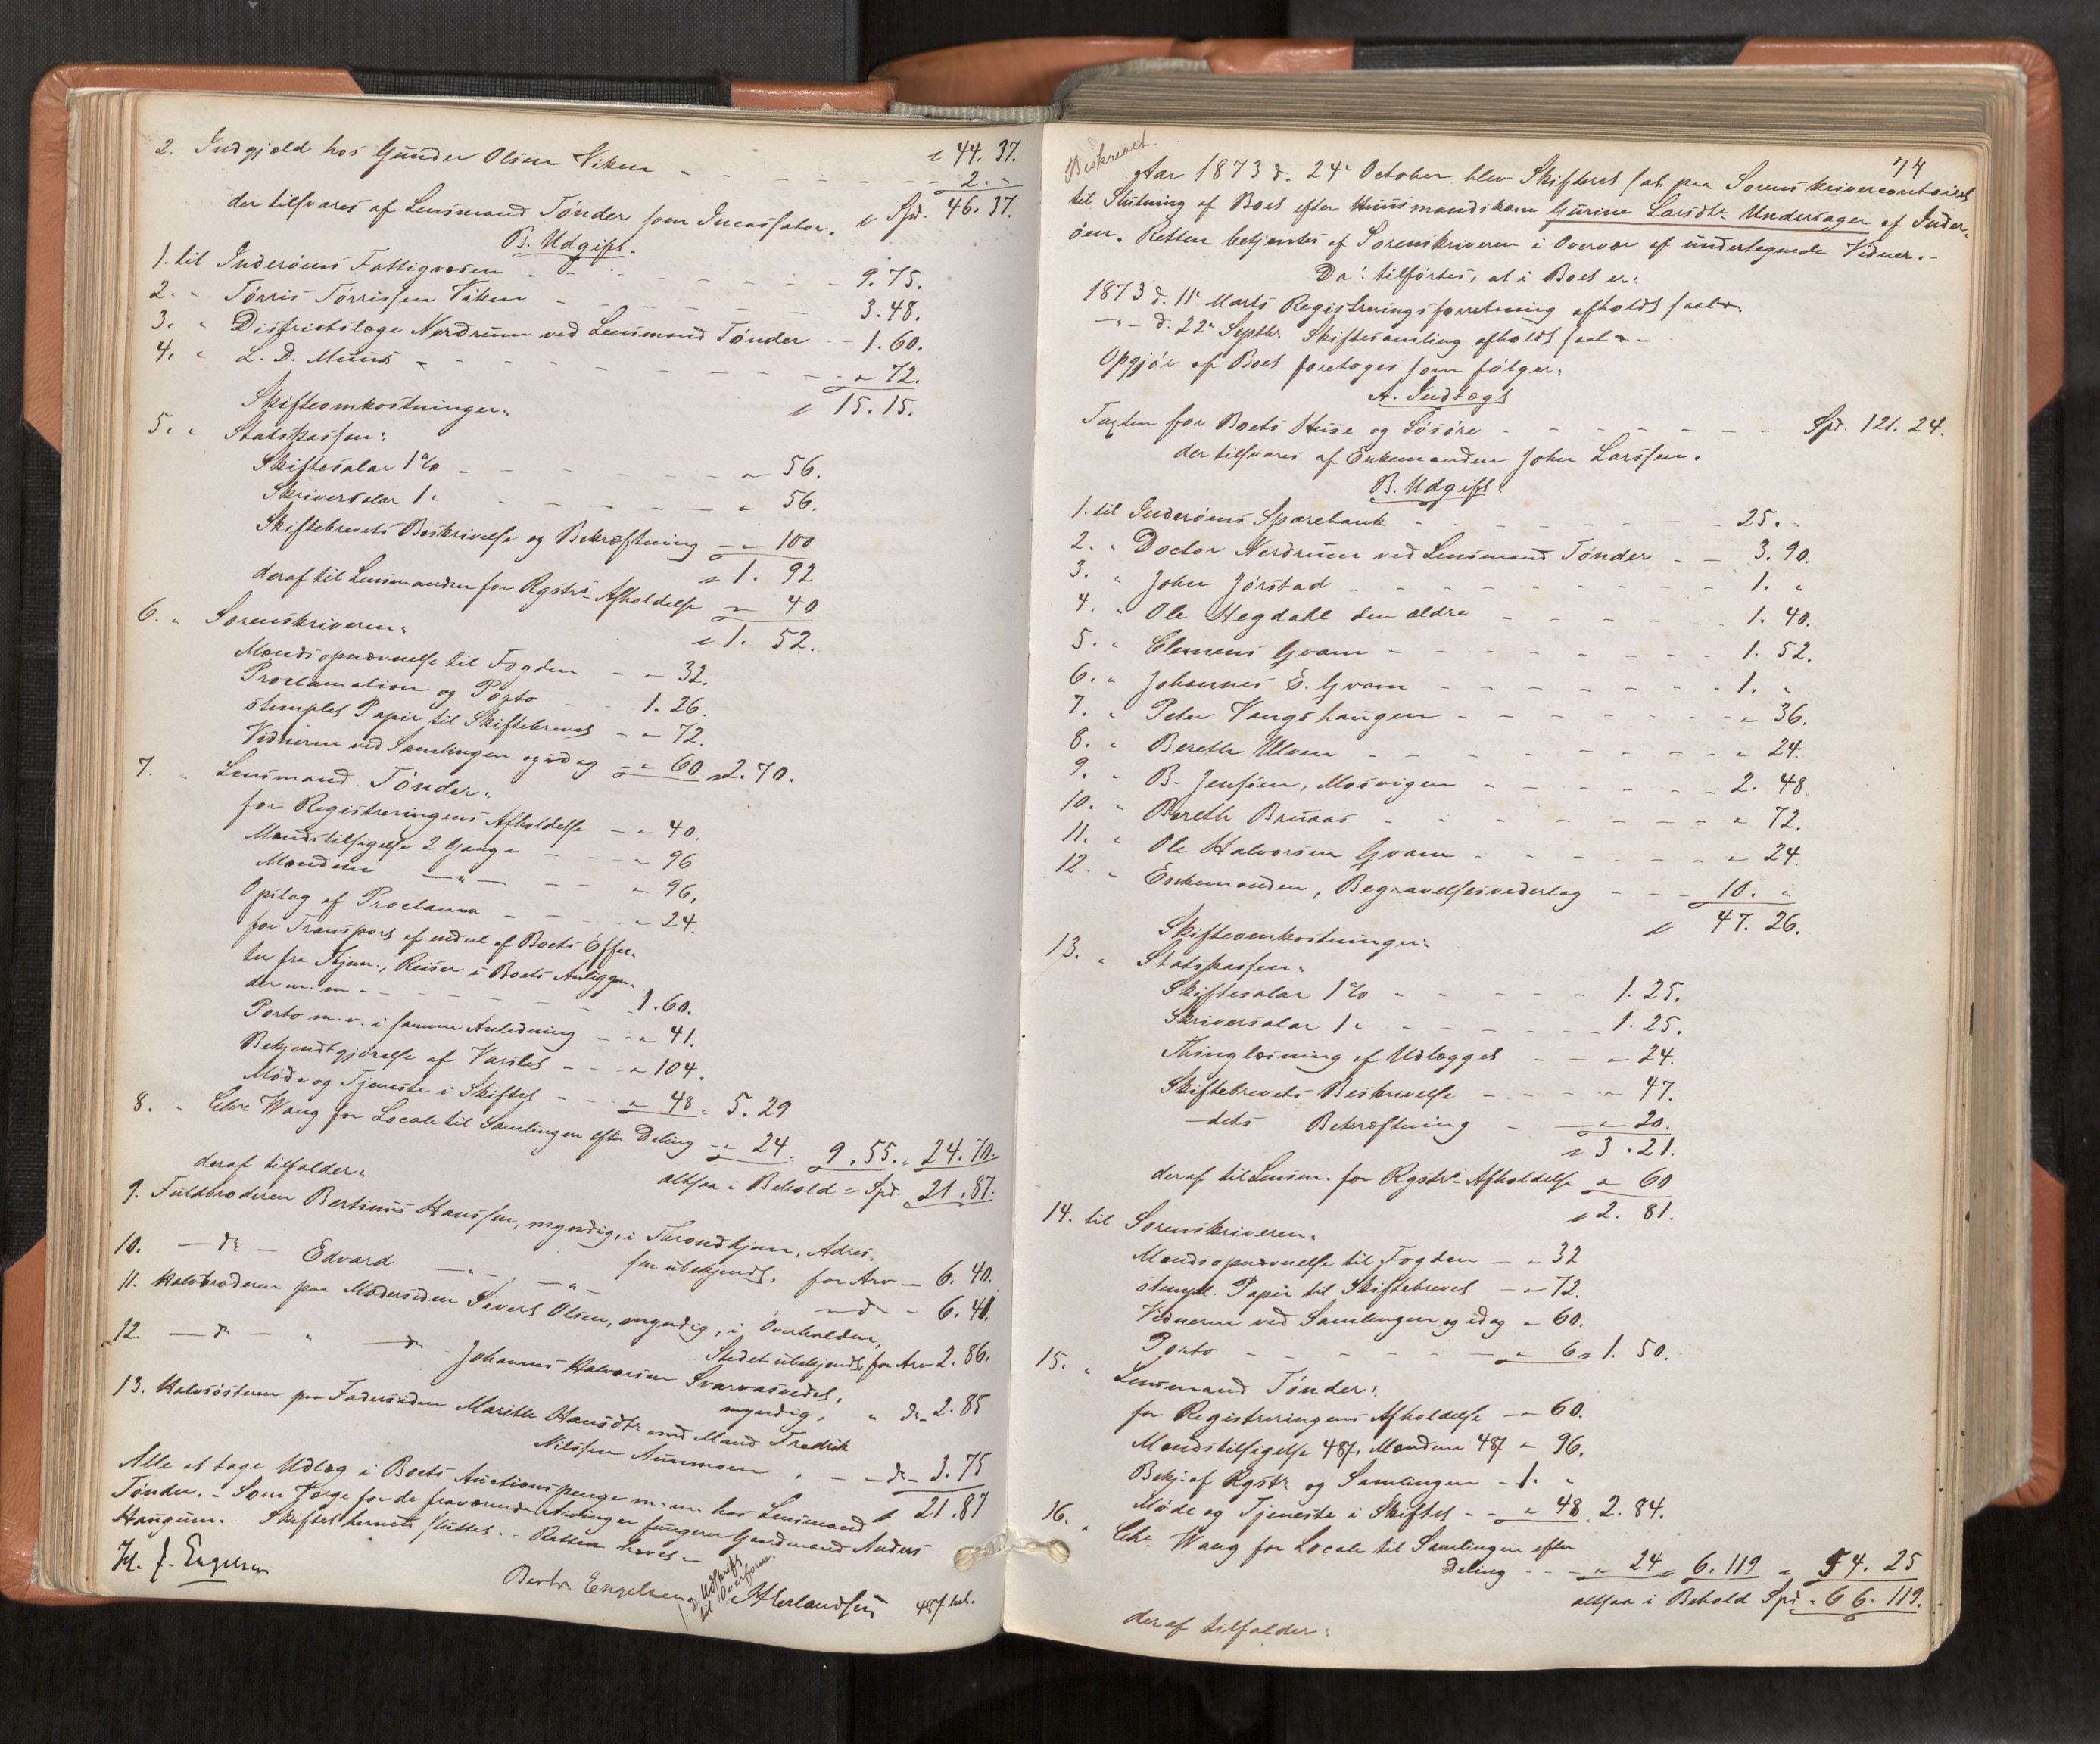 s 44. 37.
2. Indgjæld hos Gunder Olsen Viken - - - - - - - 2. "
der tilsvares af Lensmand Tønder som Incassator. s Spd. 46. 37.
B. Udgift.
1. til Inderøens Fattigvæsen - - - - - - - 9. 75.
2. " Tørris Tørrissen Viken - - - - - 3. 48.
3. " Distriktslæge Nordrum ved Lensmand Tønder - - 1. 60.
4. " L. D. Muus - - - - - - - - " 72.
s 15. 15.
Skifteomkostninger:
5. " Statskassen:
Skiftesalar 1% - - - - - " 56.
Skriversalar 1 " - - - - - " 56.
Skiftebrevets Beskrivelse og Bekræftning - " 100
s 1. 92
deraf til Lensmanden for Rgstrs Afholdelse " 40
s 1. 52.
6. " Sorenskriveren:
Mændsopnævnelse til Fogden - " 32.
Proclamation og Porto - - 1. 26.
stemplet Papir til Skiftebrevet - " 72.
Vidnerne ved Samlingen og idag - " 60 s 2. 70.
7. " Lensmand Tønder:
for Registreringens Afholdelse - " 40.
Mændstilsigelse 2 Gange - - - " 96
Mændene —"— - - " 96.
Opslag af Proclama - - - - " 24.
for Transport af endel af Boets Effec-
ter fra Thjem:, Reiser i Boets Anliggen-
der m. m - - - - - - - 1. 60.
Porto m. v. i samme Anledning - - " 41.
Bekjendtgjørelse af Varslet - - - " 104.
Møde og Tjeneste i Skiftet - - - " 48 = 5. 29
8. " Chr. Wang for Locale til Samlingen efter Deling - " 24 = 9. 55. = 24. 70.
altsaa i Behold = Spd. 21. 87.
deraf tilfalder:
9. Fuldbroderen Bertinus Hanssen, myndig, i Throndhjem, Adres-
sen ubekjendt, for Arv - 6. 40.
10. — do — Edvard —"—, —"— — do - 6. 41.
11. Halvbroderen paa Modersiden Sivert Olsen, myndig, i Overhalden,
Stedet ubekjendt, for Arv 2. 86.
12. — do — " — do Johannes Halvorsen Svarvasvedet,
myndig, " do - 2. 85
13. Halvsøsteren paa Fadersiden Marith Hansdtr. med Mand Fredrik
Nilssen Aunmoen, - - do - 3. 75
s 21. 87
Alle at tage Udlæg i Boets Auctionspenge m. m. hos Lensmand
Tønder. - Som Værge for de fraværende Arvinger fungerer Gaardmand Anders
Haugum. - Skiftet hermed sluttet. - Retten hævet -
H. J. Engelsen
Berntr. Engelsen
f. D. Udskrift
til Overform.
Herlaudsen 48ß bet.
74
Beskrevet.
Aar 1873 d. 24de October blev Skifteret sat paa Sorenskrivercontoiret
til Slutning af Boet efter Huusmandskone Gurine Larsdtr. Undersager af Inder-
øen. Retten betjentes af Sorenskriveren i Overvær af undertegnede Vidner. -
Da: tilførtes, at i Boet er:
1873 d. 11te Marts Registreringsforretning afholdt sal.
—"— d. 22de Septbr. Skiftesamling afholdt sal. -
Opgjør af Boet foretoges som følger:
A. Indtægt
Taxten for Boets Huse og Løsøre - - - - - - - Spd. 121. 24.
der tilsvares af Enkemanden John Larssen.
B. Udgift.
1. til Inderøens Sparebank - - - - - - - - 25. "
2. " Doctor Nordrum ved Lensmand Tønder - - 3. 90.
3. " John Jørstad - - - - - - - - - 1. "
4. " Ole Hegdahl den ældre - - - - - 1. 40.
5. " Clemens Gvam - - - - - - - - 1. 52.
6. " Johannes E. Gvam - - - - - - - 1. "
7. " Peter Vangshaugen - - - - - - - " 36.
8. " Bereth Ulven - - - - - - - - - " 24.
9. " B. Jenssen, Mosvigen - - - - - - 2. 48.
10. " Bereth Bruaas - - - - - - - - " 72.
11. " Ole Halvorsen Gvam - - - - - - " 24.
12. " Enkemanden, Begravelsesvederlag - - - 10. "
s 47. 26.
Skifteomkostninger:
13. " Statskassen:
Skiftesalar 1% - - - - - 1. 25.
Skriversalar 1 " - - - - - - 1. 25.
Thinglæsning af Udlægget - - " 24.
Skiftebrevets Beskrivelse - - - " 47.
dets Bekræftning - " 20.
s 3. 21.
deraf til Lensm. for Rgstrs Afholdelse " 60
s 2. 81.
14. til Sorenskriveren:
Mændsopnævnelse til Fogden - " 32
stempl. Papir til Skiftebrevet - " 72.
Vidnerne ved Samlingen og idag " 60.
Porto - - - - - - " 6 s 1. 50.
15. " Lensmand Tønder:
for Registreringens Afholdelse - " 60.
Mændstilsigelse 48ß, Mændene 48ß " 96.
Bekj: af Rgstr og Samlingen - 1. "
Møde og Tjeneste i Skiftet - - " 48 2. 84.
16. " Chr. Wang for Locale til Samlingen efter
Deling - - - " 24 = 6. 119 = 54. 25
altsaa i Behold Spd. 66. 119.
deraf tilfalder: